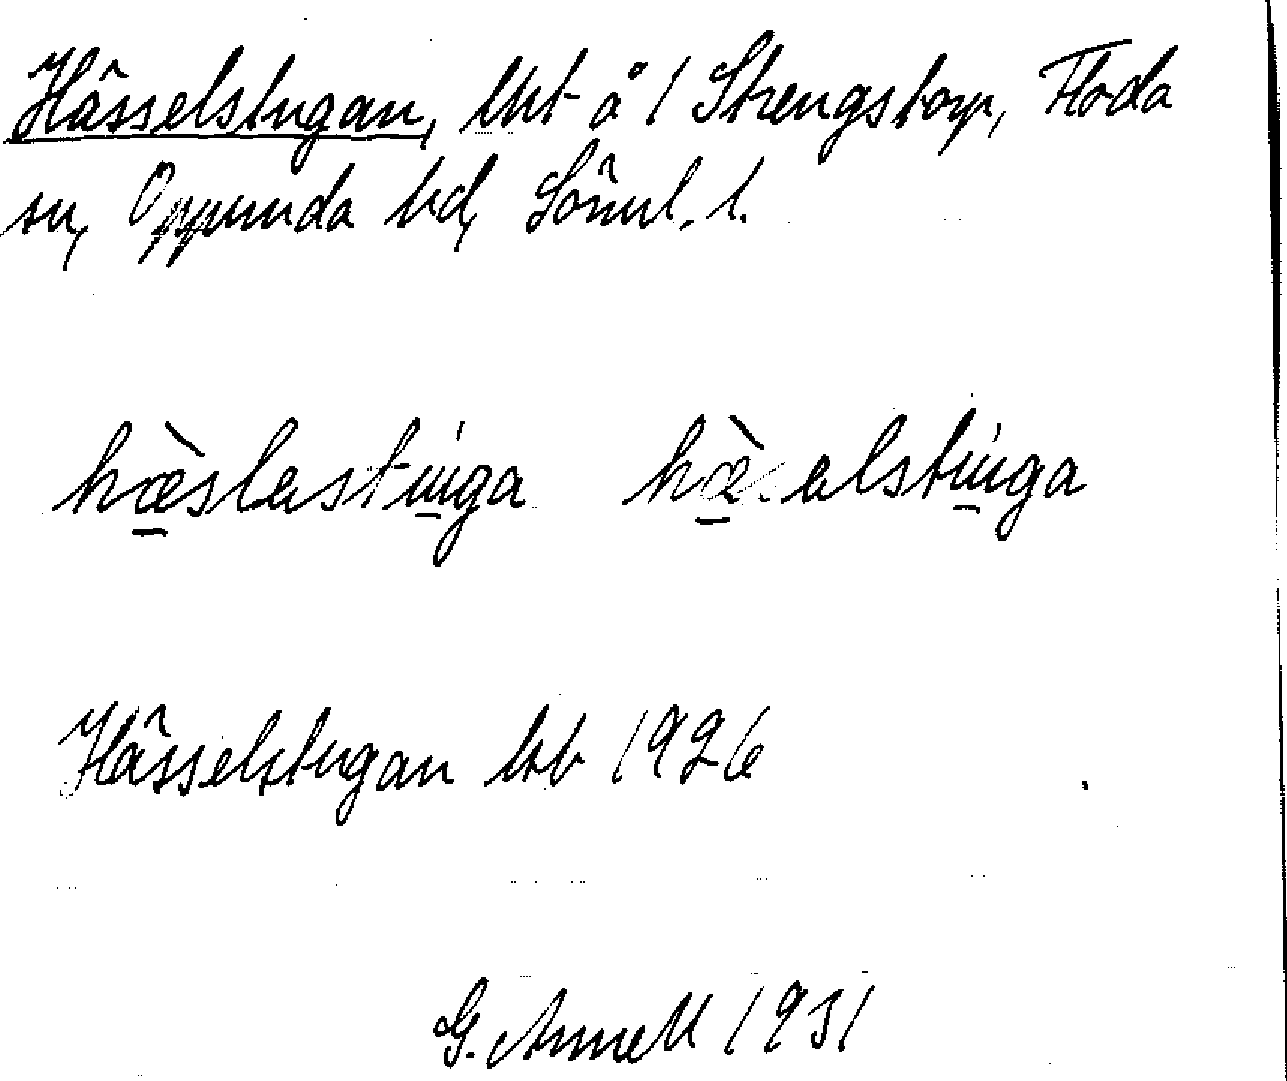 Hässelstugan, lht å 1 Strengstorp, Floda
sn, Oppunda hd, Söml. l.
hæ̀slastúga hæ̀salstúga
Hässelstugan kb 1926
G. Annell 1931